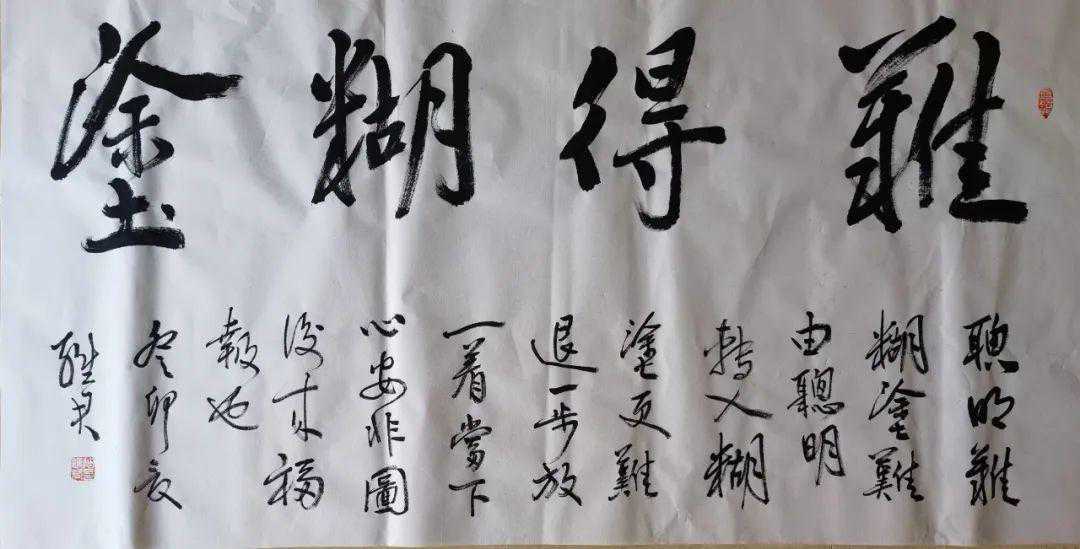 難得糊塗
聰明難
糊塗難
由聰明
轉入糊
塗更難
退一步放
一着當下
心安非圖
後来福
報也
癸卯夏